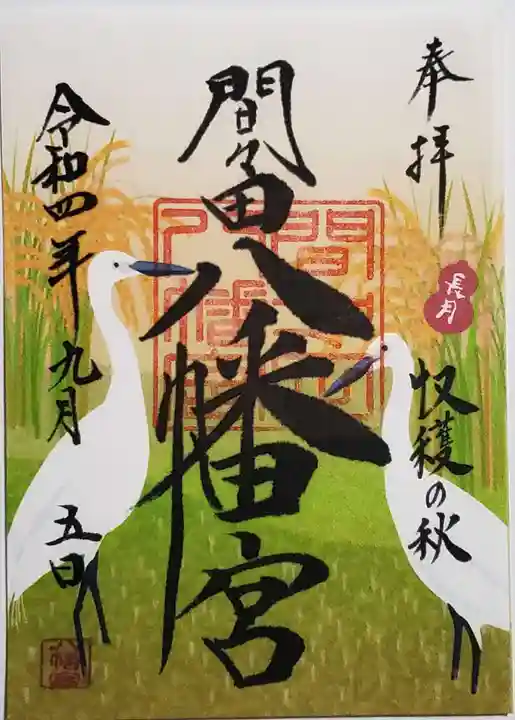 奉拝
長月
収穫の秋
間々田八幡宮
令和四年九月五日